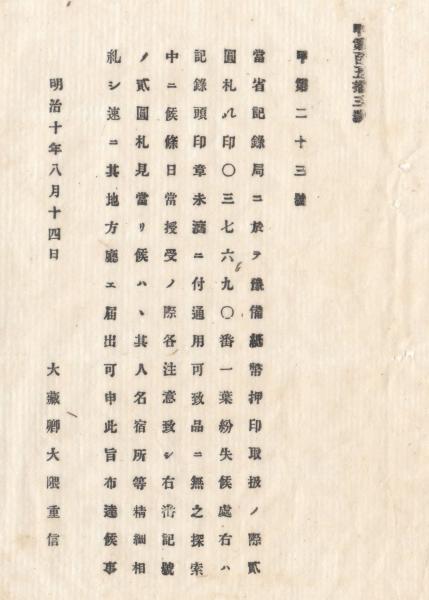 甲第百五拾三號
甲第二十三號
當省記錄局ニ於テ豫備紙幣押印取扱ノ際貳
圓札ル印〇三七六九〇番一葉紛失候處右ハ
記錄頭印章未濟ニ付通用可致品ニ無之探索
中ニ候條日常授受ノ際各注意致シ右番記號
ノ貳圓札見當リ候ハヽ其人名宿所等精細相
糺シ速ニ其地方廳エ届出可申此旨布達候事
明治十年八月十四日
大藏卿大隈重信